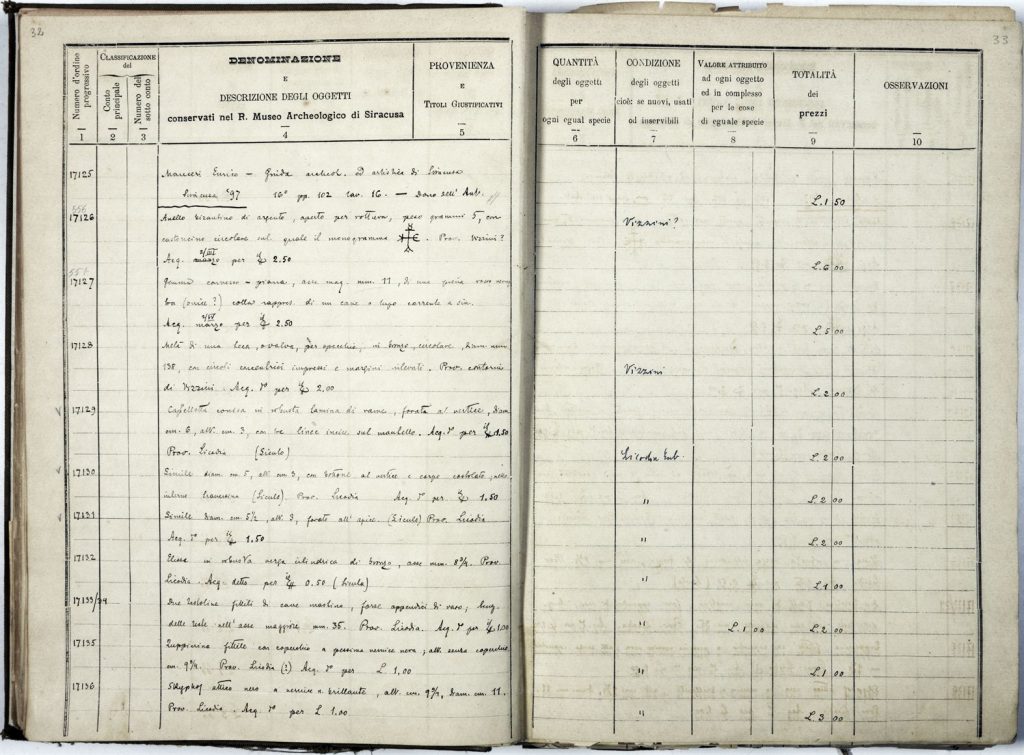 32
Numero d'ordine progressivo
1
CLASSIFICAZIONE del
Conto principale
2
Numero del sotto conto
3
DENOMINAZIONE
E
DESCRIZIONE DEGLI OGGETTI
conservati nel R. Museo Archeologico di Siracusa
4
PROVENIENZA
E
TITOLI GIUSTIFICATIVI
5
17125 Mauceri Enrico – Guida archeol. ed artistica di Siracusa
Siracusa '97 16° pp. 102 tav. 16. — Dono dell' Aut.
17126 Anello bizantino di argento, aperto per rottura, peso grammi 5, con
castoncino circolare sul quale il monogramma . Prov. Vizzini?
Acq. marzo per £ 2.50
17127 Gemma convesso – piana, asse mag. mm. 11, di una
(onice?) colla rappres. di un cane o lupo corrente a sin.
Acq. marzo per £ 2.50
17128 Metà di una teca, o valva, per specchio, in bronzo, circolare, diam. mm
138, con circoli impressi e margini rilevati. Prov. contorni
di Vizzini. Acq. per £ 2.00
17129 conica in robusta lamina di rame, forata al vertice, diam.
cm. 6, alt. cm. 3, con tre linee incise sul mantello. Acq. per £ 1.50
Prov. Licodia (Siculo)
17130 Simile diam. cm. 5, alt. cm 3, con bottone al vertice e corpo costolato;
interne traversina (Siculo). Prov. Licodia Acq. per £ 1.50
17131 Simile diam. cm. 5½, alt. 3, forato all' apice. (Siculo) Prov. Licodia
Acq. per £ 1.50
17132 in robusta verga cilindrica di bronzo, asse mm. 8¾. Prov
Licodia. Acq. detto per £ 0.50 (Sicula)
17133/34 Due testoline fittili di cane mastino, forse appendici di vaso; lung.
delle teste nell' asse maggiore mm. 35. Prov. Licodia. Acq. per £ 1.00
17135 Zuppierina fittile con coperchio a pessima vernice nera; alt. senza coperchio
cm. 9¾. Prov. Licodia (?) Acq. per L 1.00
17136 Skyphos attico nero a vernice brillante, alt. cm. 9¾, diam. cm. 11.
Prov. Licodia. Acq. per L. 1.00
33
QUANTITÀ
degli oggetti
per
ogni egual specie
6
CONDIZIONE
degli oggetti
cioè: se nuovi, usati
od inservibili
7
VALORE ATTRIBUITO
ad ogni oggetto
ed in complesso
per le cose
di eguale specie
8
TOTALITÀ
dei
prezzi
9
OSSERVAZIONI
10
L. 1 50
Vizzini?
L. 6 00
L. 5 00
Vizzini
L. 2 00
Licodia Eub.
L. 2 00
" L. 2 00
" L. 2 00
" L. 1 00
" L. 1 00 L. 2 00
" L. 1 00
" L. 3 00